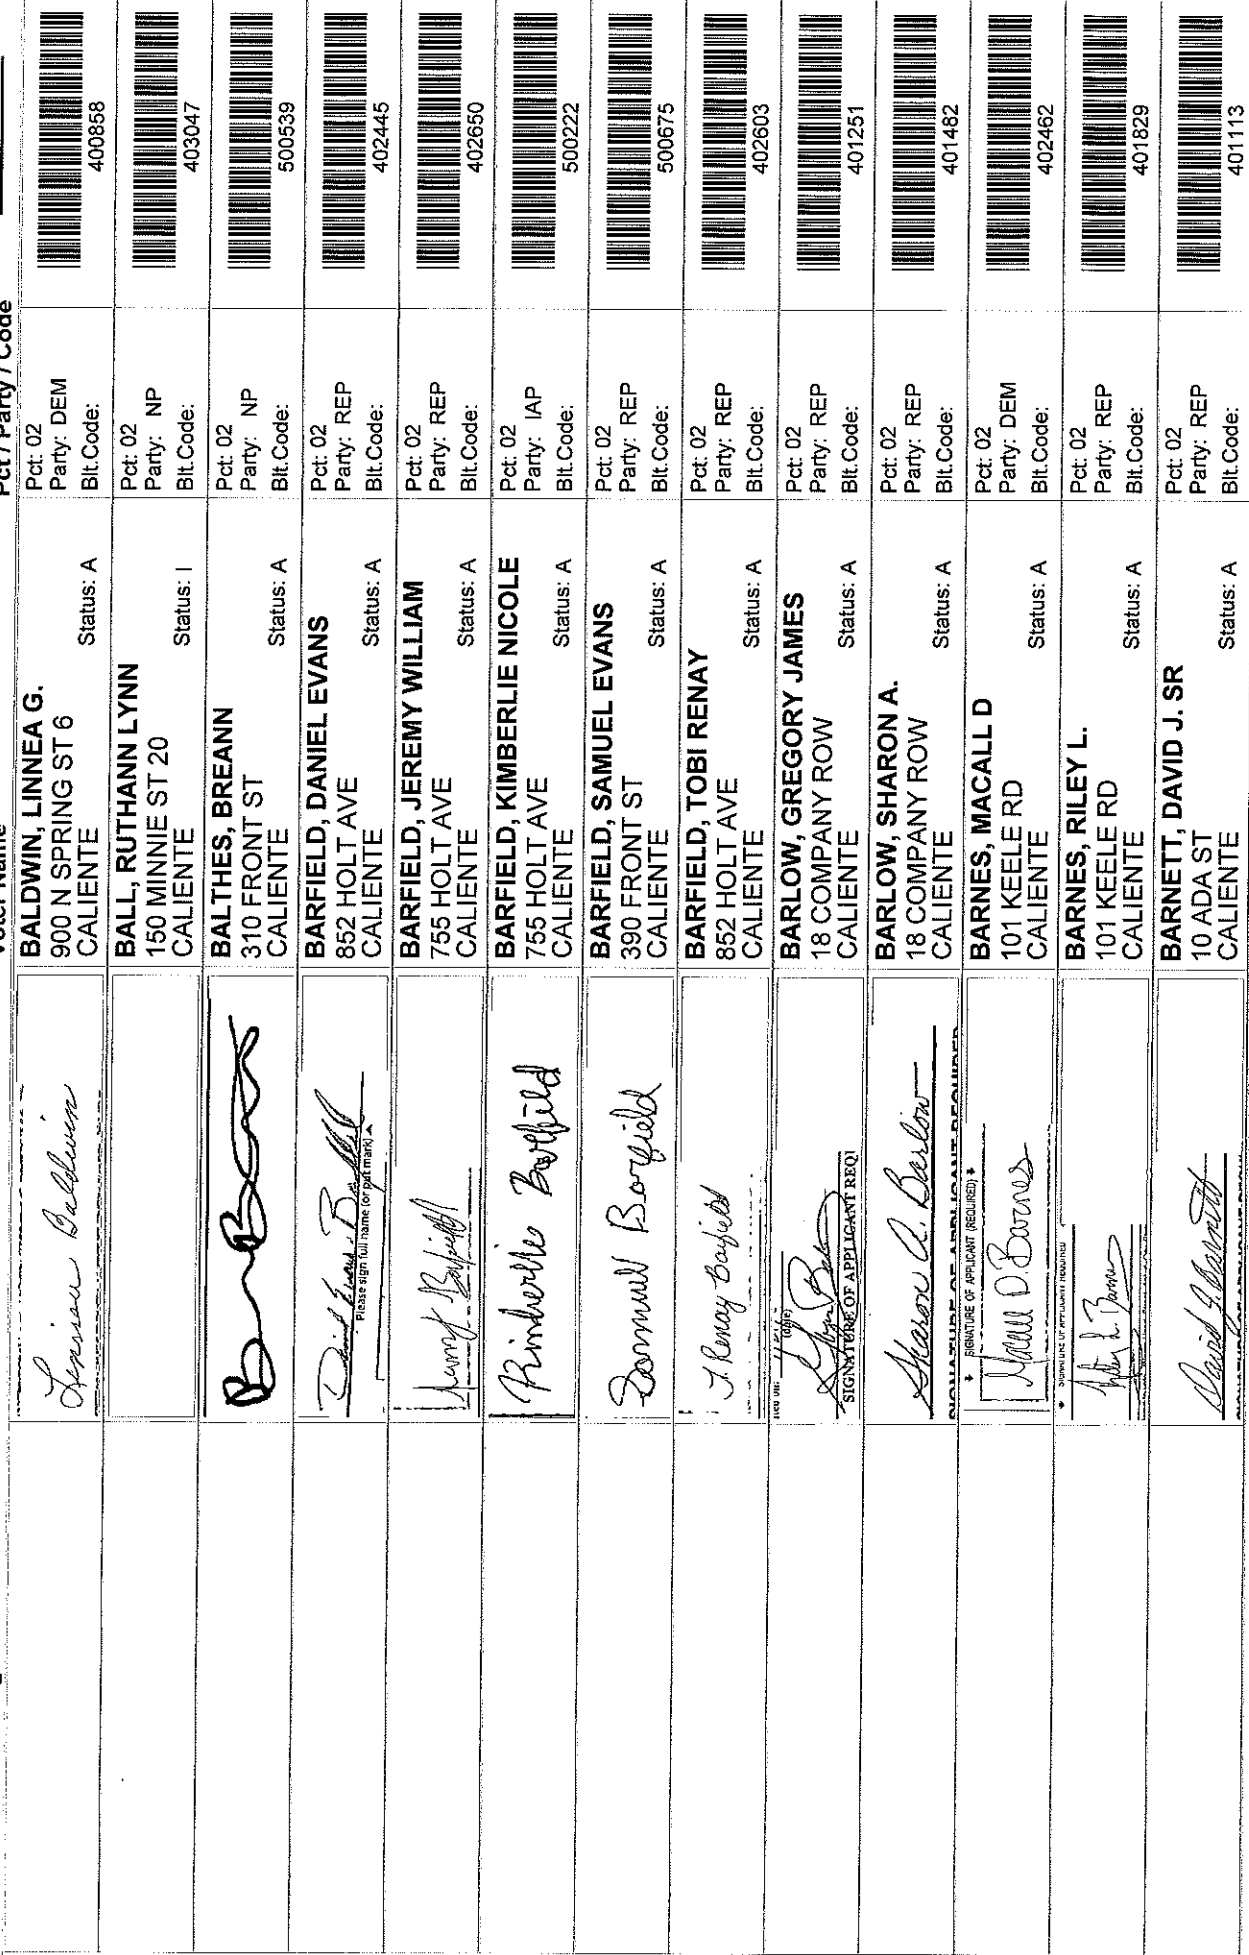 Voter Name
Pct / Party / Code
Linnea Baldwin
BALDWIN, LINNEA G.
900 N SPRING ST 6
CALIENTE
Status: A
Pct: 02
Party: DEM
Blt.Code:
400858
BALL, RUTHANN LYNN
150 MINNIE ST 20
CALIENTE
Status: I
Pct: 02
Party: NP
Blt.Code:
403047
BALTHES, BREANN
310 FRONT ST
CALIENTE
Status: A
Pct: 02
Party: NP
Blt.Code:
500539
Please sign full name (or put mark)
BARFIELD, DANIEL EVANS
852 HOLT AVE
CALIENTE
Status: A
Pct: 02
Party: REP
Blt.Code:
402445
BARFIELD, JEREMY WILLIAM
755 HOLT AVE
CALIENTE
Status: A
Pct: 02
Party: REP
Blt.Code:
402650
Kimberlie Barfield
BARFIELD, KIMBERLIE NICOLE
755 HOLT AVE
CALIENTE
Status: A
Pct: 02
Party: IAP
Blt.Code:
500222
Samuel Barfield
BARFIELD, SAMUEL EVANS
390 FRONT ST
CALIENTE
Status: A
Pct: 02
Party: REP
Blt.Code:
500675
T. Renay Barfield
BARFIELD, TOBI RENAY
852 HOLT AVE
CALIENTE
Status: A
Pct: 02
Party: REP
Blt.Code:
402603
(date)
SIGNATURE OF APPLICANT REQI
BARLOW, GREGORY JAMES
18 COMPANY ROW
CALIENTE
Status: A
Pct: 02
Party: REP
Blt.Code:
401251
Sharon A. Barlow
SIGNATURE OF APPLICANT REQUIRED
BARLOW, SHARON A.
18 COMPANY ROW
CALIENTE
Status: A
Pct: 02
Party: REP
Blt.Code:
401482
SIGNATURE OF APPLICANT (REQUIRED)
Macall D. Barnes
BARNES, MACALL D
101 KEELE RD
CALIENTE
Status: A
Pct: 02
Party: DEM
Blt.Code:
402462
SIGNATURE OF APPLICANT REQUIRED
Riley L. Barnes
BARNES, RILEY L.
101 KEELE RD
CALIENTE
Status: A
Pct: 02
Party: REP
Blt.Code:
401829
David J. Barnett
BARNETT, DAVID J. SR
10 ADA ST
CALIENTE
Status: A
Pct: 02
Party: REP
Blt.Code:
401113